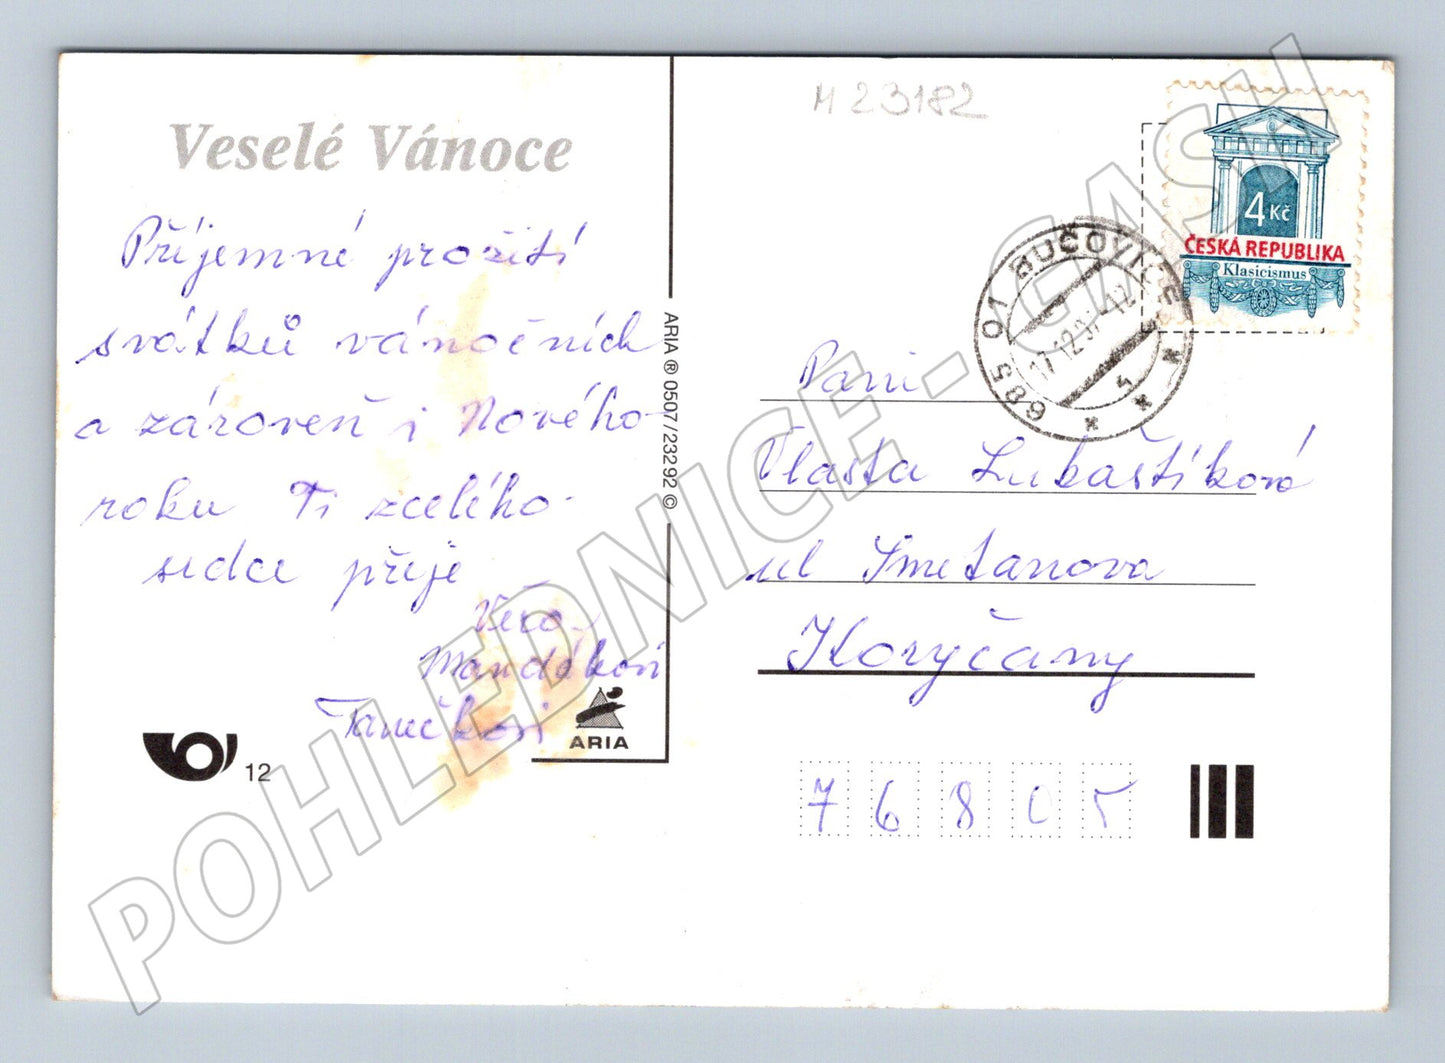 Veselé Vánoce
Příjemné prožití
svátků vánočních
a zároveň i Nového
roku Ti zcelého
srdce přeje
Věra
Mandákovi
Tanečkovi
12
ARIA
ARIA ® 0507/23292 ©
M 23182
4 Kč
ČESKÁ REPUBLIKA
Klasicismus
685 01 BUČOVICE
Paní
Vlasta Lukaštíková
ul Smetanova
Koryčany
76805
POHLEDNICE - GASH